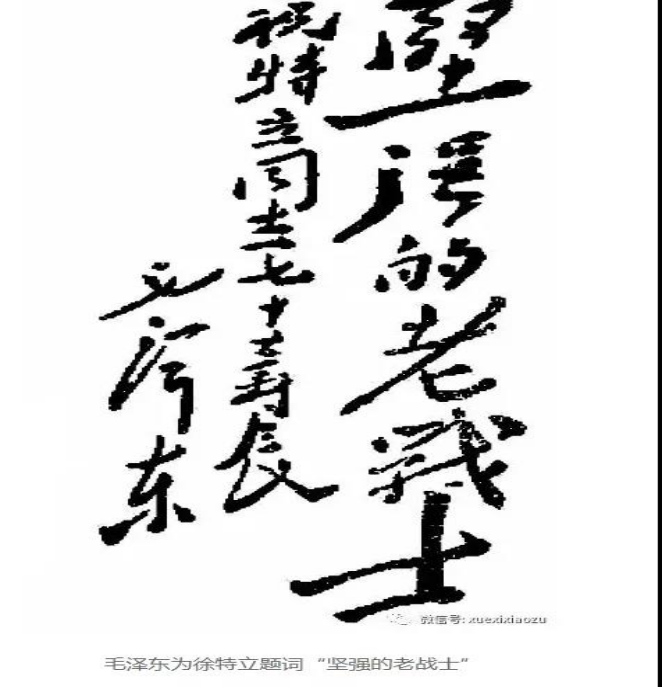 堅强的老戰士
祝特立同志七十大寿
毛泽东
微信号: xuexixiaozu
毛泽东为徐特立题词“坚强的老战士”